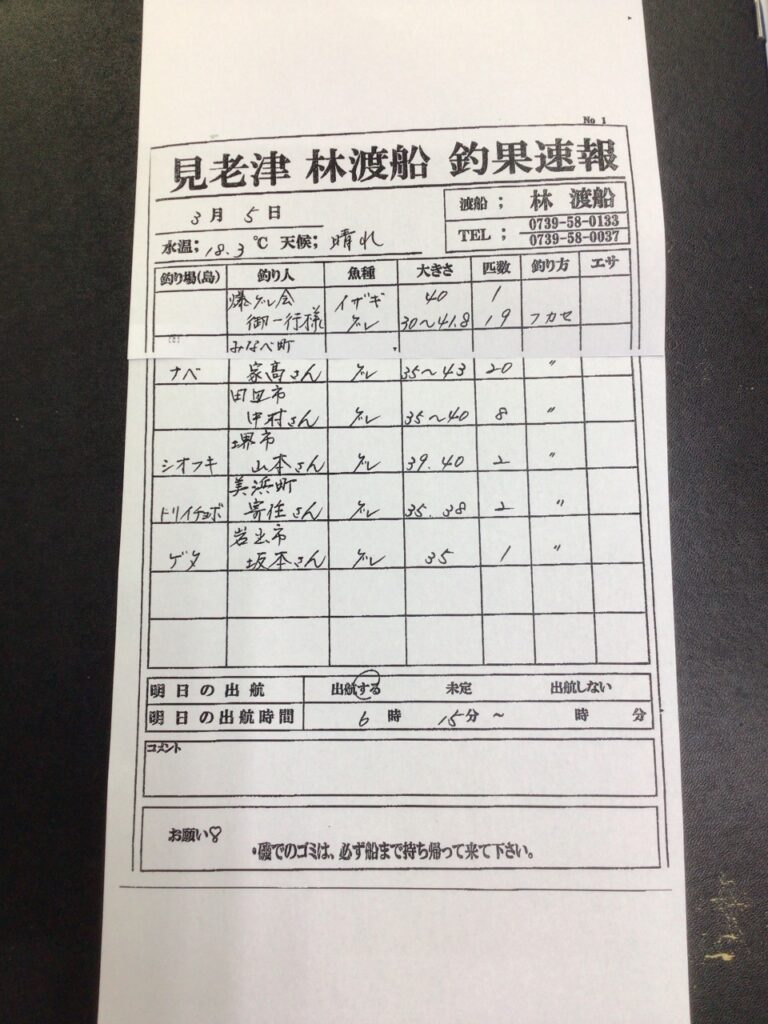 No 1
見老津 林渡船 釣果速報
3月 5日
渡船 ; 林 渡船
水温; 18.3 ℃ 天候; 晴れ
TEL ; 0739-58-0133
0739-58-0037
釣り場(島) 釣り人 魚種 大きさ 匹数 釣り方 エサ
爆グレ会 イサギ 40 1
御一行様 グレ 30〜41.8 19 フカセ
みなべ町
ナベ 家高さん グレ 35〜43 20 〃
田辺市
中村さん グレ 35〜40 8 〃
堺市
シオフキ 山本さん グレ 39.40 2 〃
美浜町
トリイチョボ 寄住さん グレ 35.38 2 〃
岩出市
ゲタ 坂本さん グレ 35 1 〃
明日の出航 出航する 未定 出航しない
明日の出航時間 6 時 15分 〜 時 分
コメント
お願い♡
・磯でのゴミは、必ず船まで持ち帰って来て下さい。